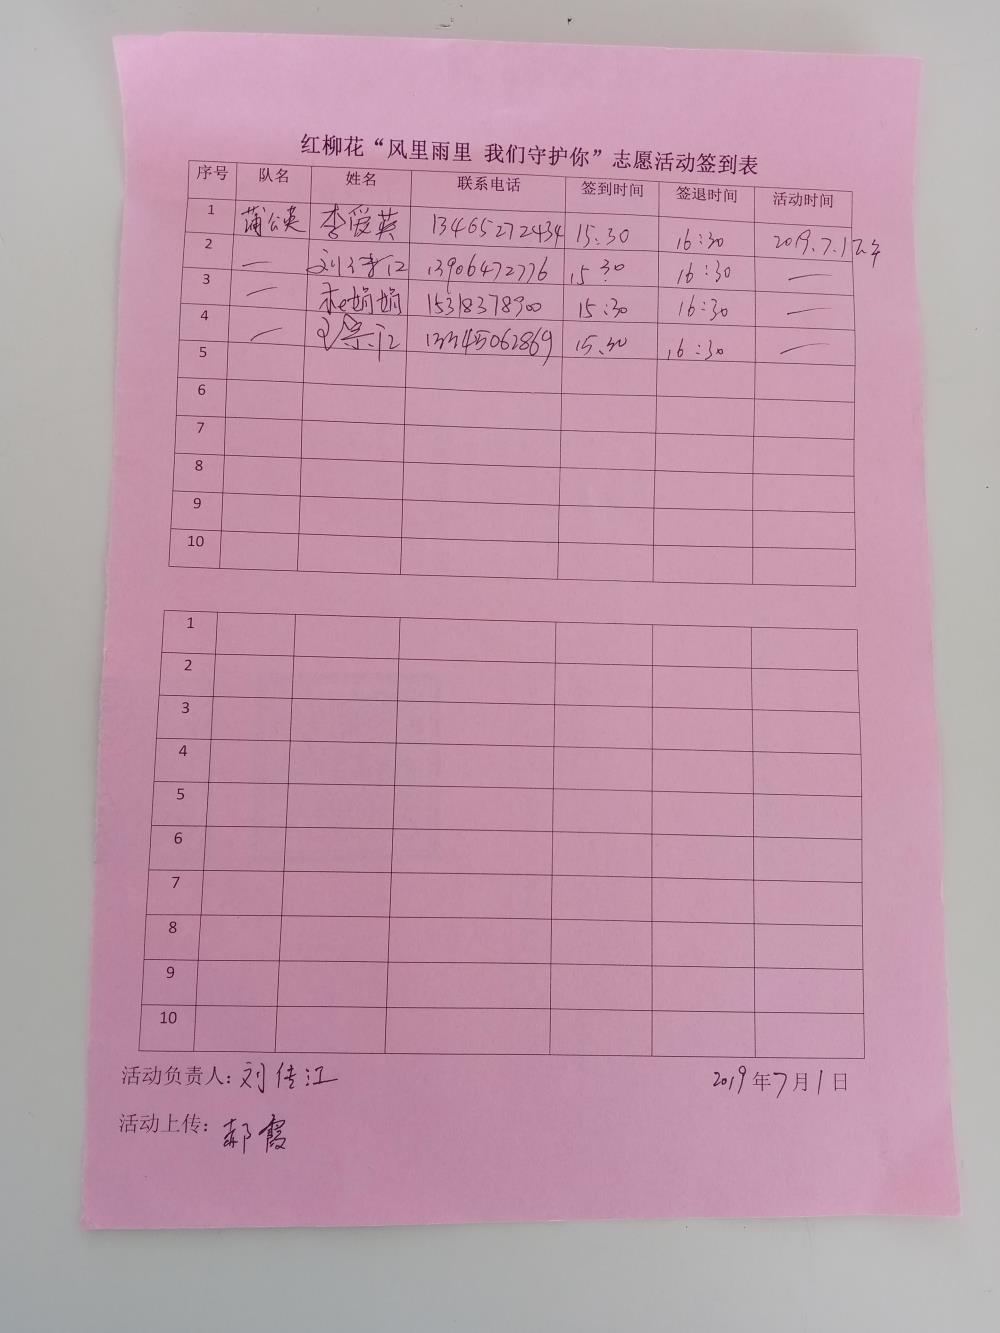 红柳花“风里雨里 我们守护你”志愿活动签到表
序号 队名 姓名 联系电话 签到时间 签退时间 活动时间
1 蒲公英 李爱英 13465272434 15:30 16:30 2019.7.1下午
2 — 刘传江 13906472776 15:30 16:30 —
3 — 娟娟 15318378900 15:30 16:30 —
4 — 13345062869 15:30 16:30 —
5
6
7
8
9
10
1
2
3
4
5
6
7
8
9
10
活动负责人：刘传江 2019年7月1日
活动上传：郝霞